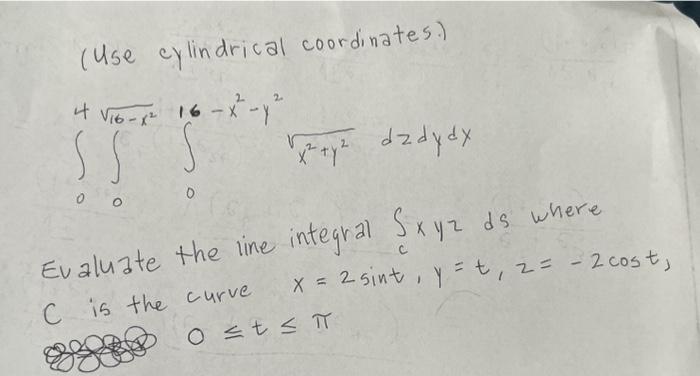 (Use cylindrical coordinates.)
4 √16-x² 16-x²-y²
∫ ∫ ∫ √x²+y² dzdydx
0 0 0
Evaluate the line integral ∫ xyz ds where
C
C is the curve x = 2 sint, y = t, z = -2 cost,
0 ≤ t ≤ π